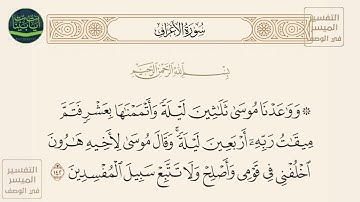 سُورَةُ الأَعْرَافِ
بِسْمِ ٱللَّهِ ٱلرَّحْمَٰنِ ٱلرَّحِيمِ
التفسير الميسر في الوصف
۞ وَوَٰعَدْنَا مُوسَىٰ ثَلَٰثِينَ لَيْلَةً وَأَتْمَمْنَٰهَا بِعَشْرٍ فَتَمَّ
مِيقَٰتُ رَبِّهِۦٓ أَرْبَعِينَ لَيْلَةً ۚ وَقَالَ مُوسَىٰ لِأَخِيهِ هَٰرُونَ
ٱخْلُفْنِى فِى قَوْمِى وَأَصْلِحْ وَلَا تَتَّبِعْ سَبِيلَ ٱلْمُفْسِدِينَ ١٤٢
التفسير الميسر في الوصف